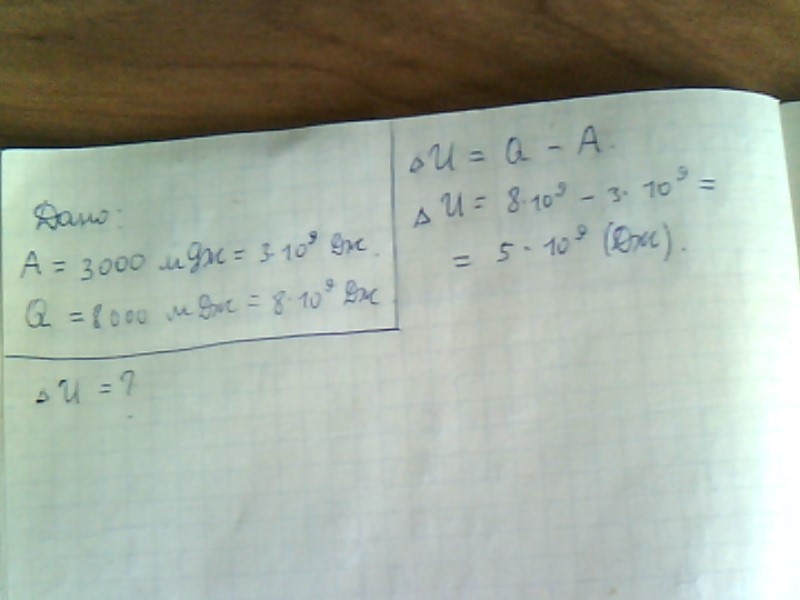 Дано:
A = 3000 мДж = 3·10⁹ Дж.
Q = 8000 мДж = 8·10⁹ Дж
ΔU = ?
ΔU = Q - A.
ΔU = 8·10⁹ - 3·10⁹ =
= 5·10⁹ (Дж).